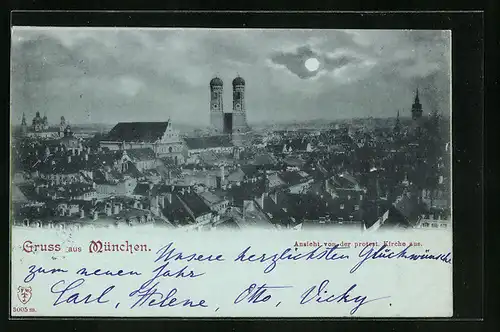 Gruss aus München.
Ansicht von der protest. Kirche aus.
Unsere herzlichsten Glückwünsche
zum neuen Jahr
Carl, Helene, Otto, Vicky.
5005 m.